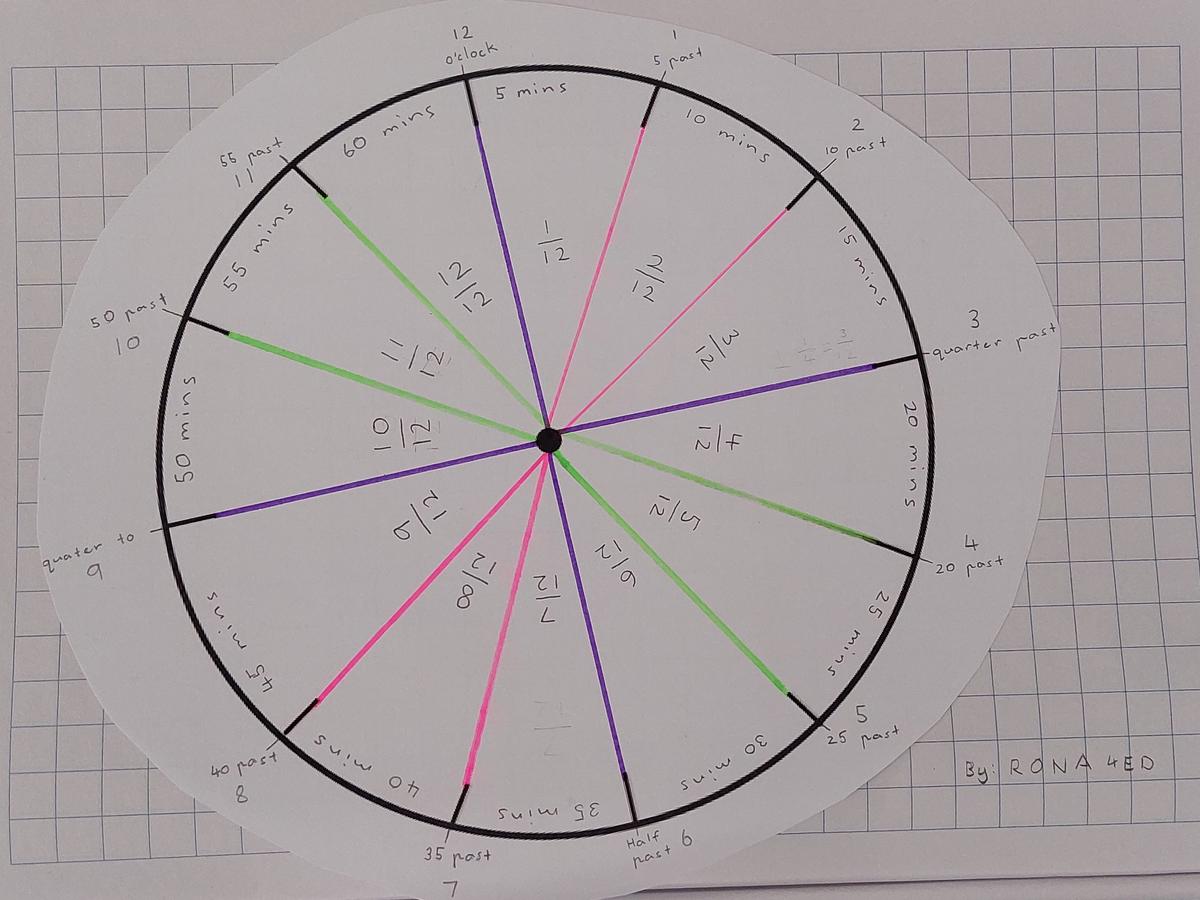 12
o'clock
1
5 past
2
10 past
3
quarter past
4
20 past
5
25 past
6
Half
past
35 past
7
40 past
8
quater to
9
50 past
10
55 past
11
5 mins
10 mins
15 mins
20 mins
25 mins
30 mins
35 mins
40 mins
45 mins
50 mins
55 mins
60 mins
1/12
2/12
3/12
4/12
5/12
6/12
7/12
8/12
9/12
10/12
11/12
12/12
By: RONA 4ED